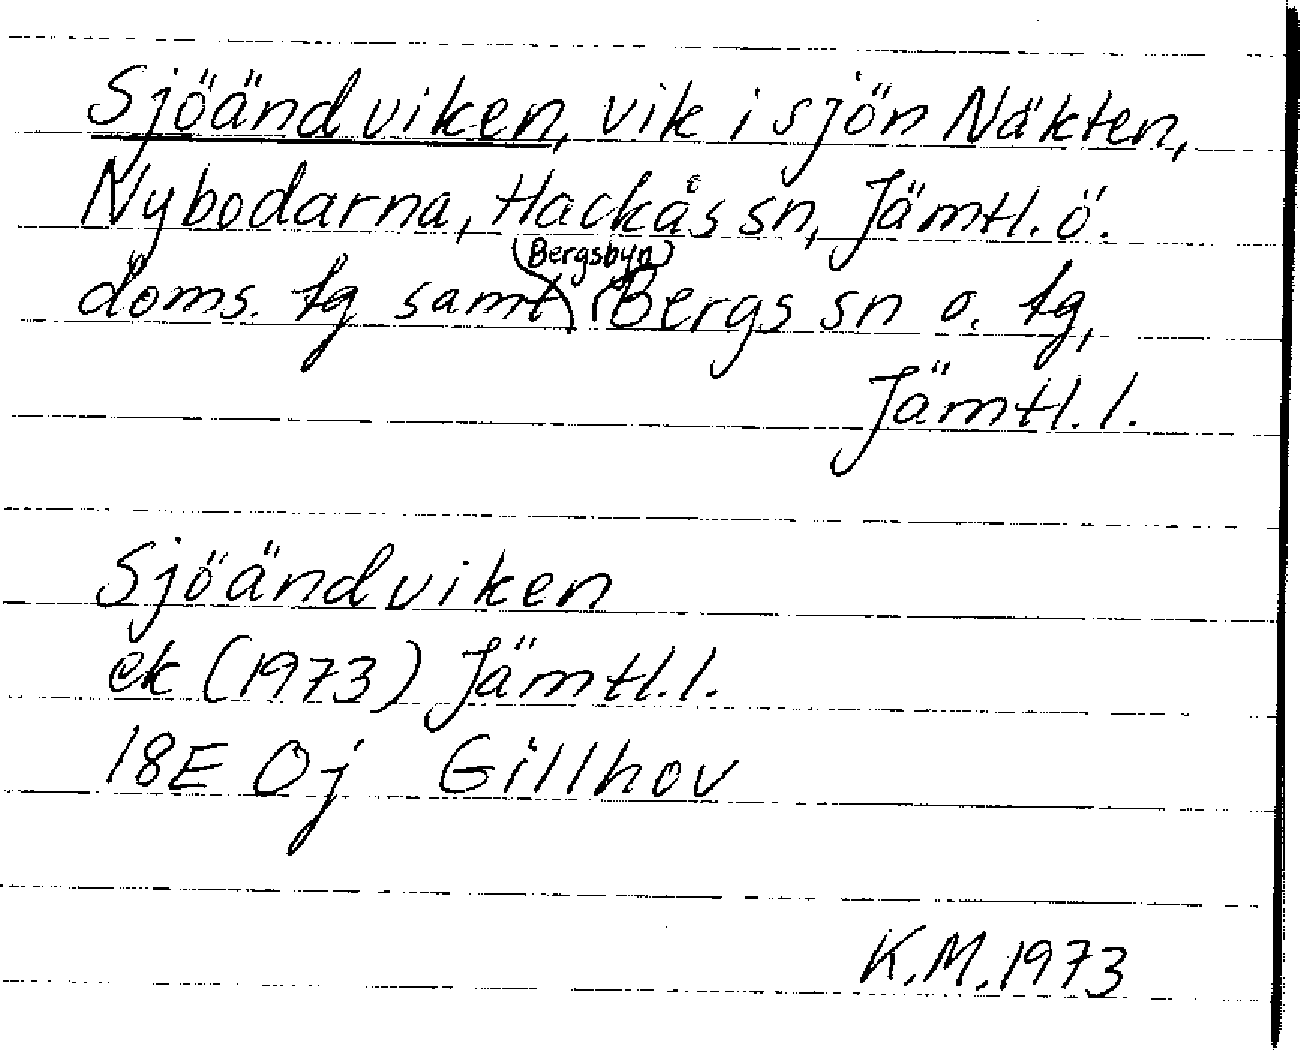 Sjöändviken, vik i sjön Näkten,
Nybodarna, Hackås sn, Jämtl. ö.
doms. tg samt Bergsbyn Bergs sn o. tg,
Jämtl. l.
Sjöändviken
ek (1973) Jämtl. l.
18E 0j Gillhov
K.M. 1973